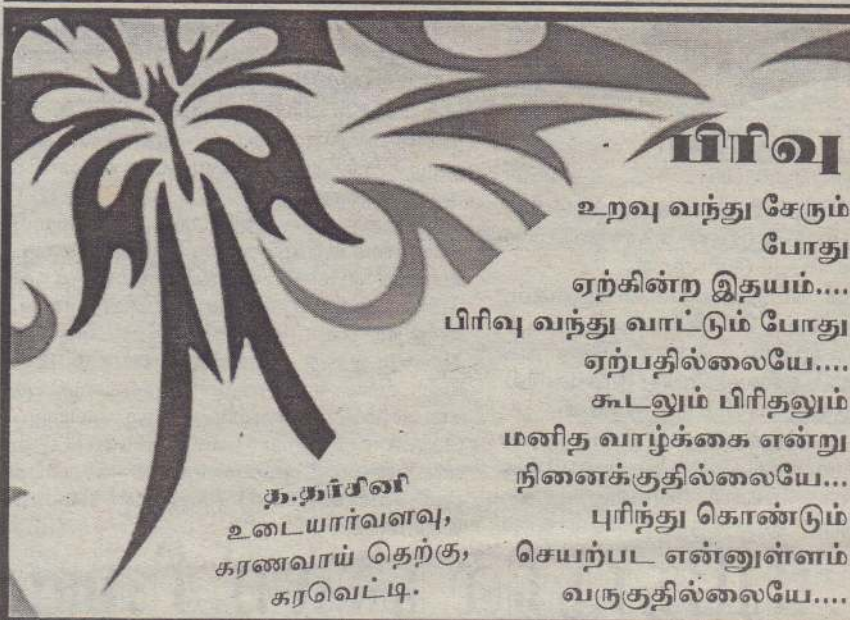 பிரிவு
உறவு வந்து சேரும்
போது
ஏற்கின்ற இதயம்....
பிரிவு வந்து வாட்டும் போது
ஏற்பதில்லையே....
கூடலும் பிரிதலும்
மனித வாழ்க்கை என்று
நினைக்குதில்லையே...
புரிந்து கொண்டும்
செயற்பட என்னுள்ளம்
வருகுதில்லையே....
த.தர்சினி
உடையார்வளவு,
கரணவாய் தெற்கு,
கரவெட்டி.